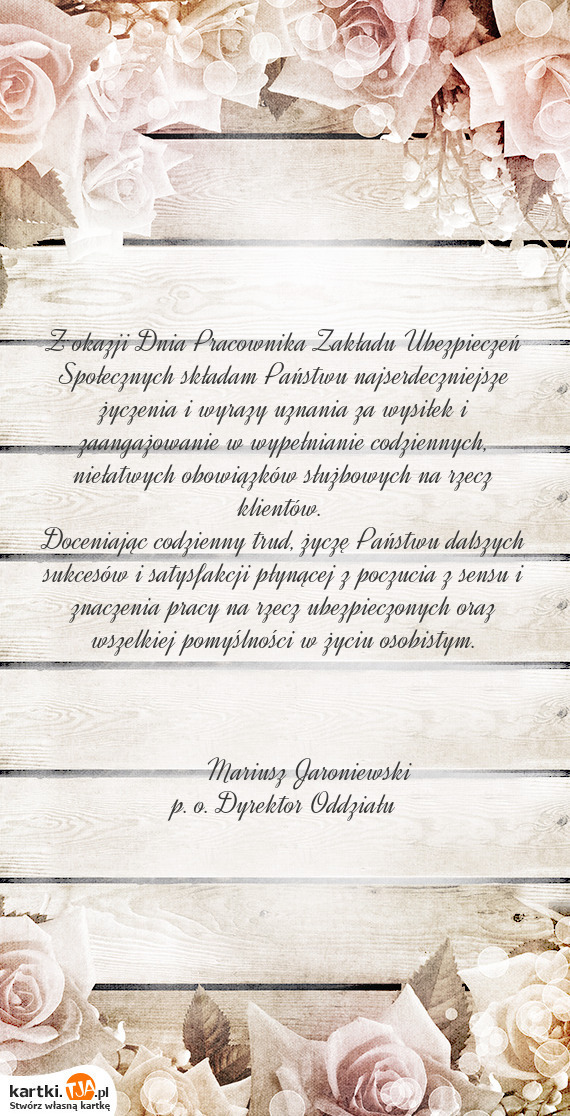 Z okazji Dnia Pracownika Zakładu Ubezpieczeń
Społecznych składam Państwu najserdeczniejsze
życzenia i wyrazy uznania za wysiłek i
zaangażowanie w wypełnianie codziennych,
niełatwych obowiązków służbowych na rzecz
klientów.
Doceniając codzienny trud, życzę Państwu dalszych
sukcesów i satysfakcji płynącej z poczucia z sensu i
znaczenia pracy na rzecz ubezpieczonych oraz
wszelkiej pomyślności w życiu osobistym.
Mariusz Jaroniewski
p. o. Dyrektor Oddziału
kartki.TJA.pl
Stwórz własną kartkę